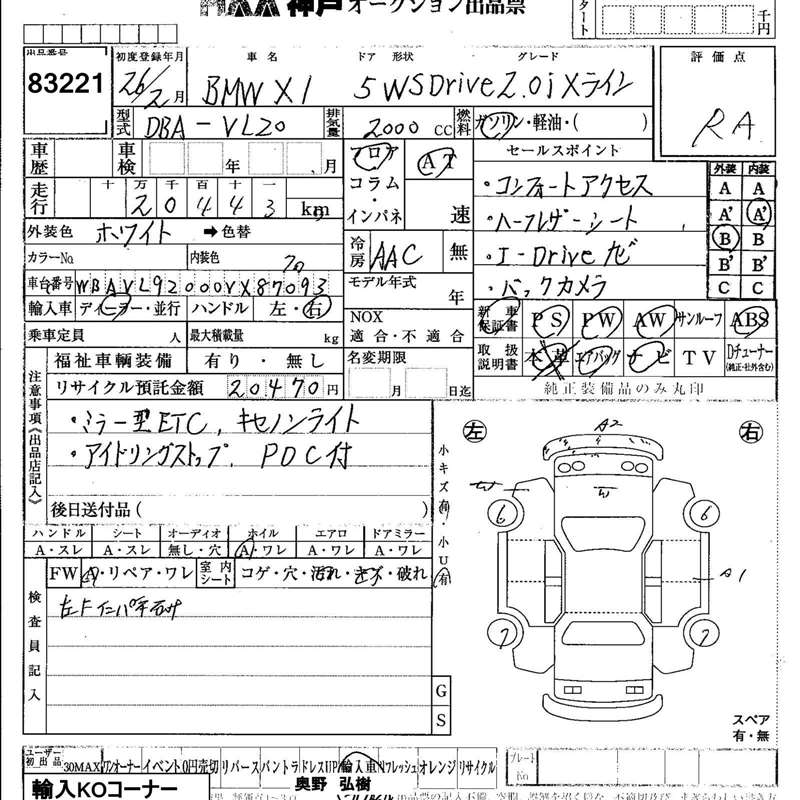 HAA 神戸 オークション出品票
タート 千円
出品番号
83221
初度登録年月 車名 ドア 形状 グレード 評価点
26/2月 BMW X1 5WSDrive2.0i Xライン RA
型式 DBA-VL20 排気量 2000 CC 燃料 ガソリン・軽油・( )
車歴 車検 年 月 フロア AT セールスポイント
外装 内装
コラム・インパネ 速
走行 十 万 千 百 十 一
20443 km
・コンフォートアクセス
・ハーフレザーシート
・I-Driveナビ
・バックカメラ
A A
A' A'
B B
B' B'
C C
外装色 ホワイト ➡色替
冷房 AAC 無
カラーNo. 内装色
車台番号 WBAVL92000VX87093
モデル年式 年
輸入車 ディーラー・並行 ハンドル 左・右
NOX 適合・不適合
乗車定員 人 最大積載量 kg
新車保証書 PS PW AW サンルーフ ABS
取扱説明書 本革 エアバッグ ナビ TV Dチューナー(純正・社外含む)
純正装備品のみ丸印
福祉車輌装備 有り・無し
名変期限 月 日迄
リサイクル預託金額 20470円
注意事項《出品店記入》
・ミラー型ETC, キセノンライト
・アイドリングストップ, PDC付
後日送付品( )
小キズ有・小U有
ハンドル シート オーディオ ホイル エアロ ドアミラー
A・スレ A・スレ 無し・穴 A・ワレ A・ワレ A・ワレ
FW A・リペア・ワレ 室内シート コゲ・穴・汚れ・キズ・破れ
検査員記入
G
S
左 A2 右
6 6
A1
7 7
スペア
有・無
ユーザー初出品 30MAX ワンオーナー イベント 0円売切 リバース バントラ ドレスUP 輸入車 Nフレッシュ オレンジ リサイクル
プレートNo
輸入KOコーナー
奥野 弘樹